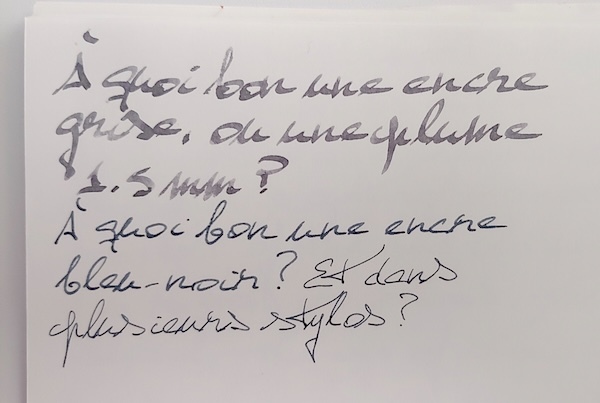 À quoi bon une encre
grise, ou une plume
1.5 mm ?
À quoi bon une encre
bleu-noir ? Et dans
plusieurs stylos ?